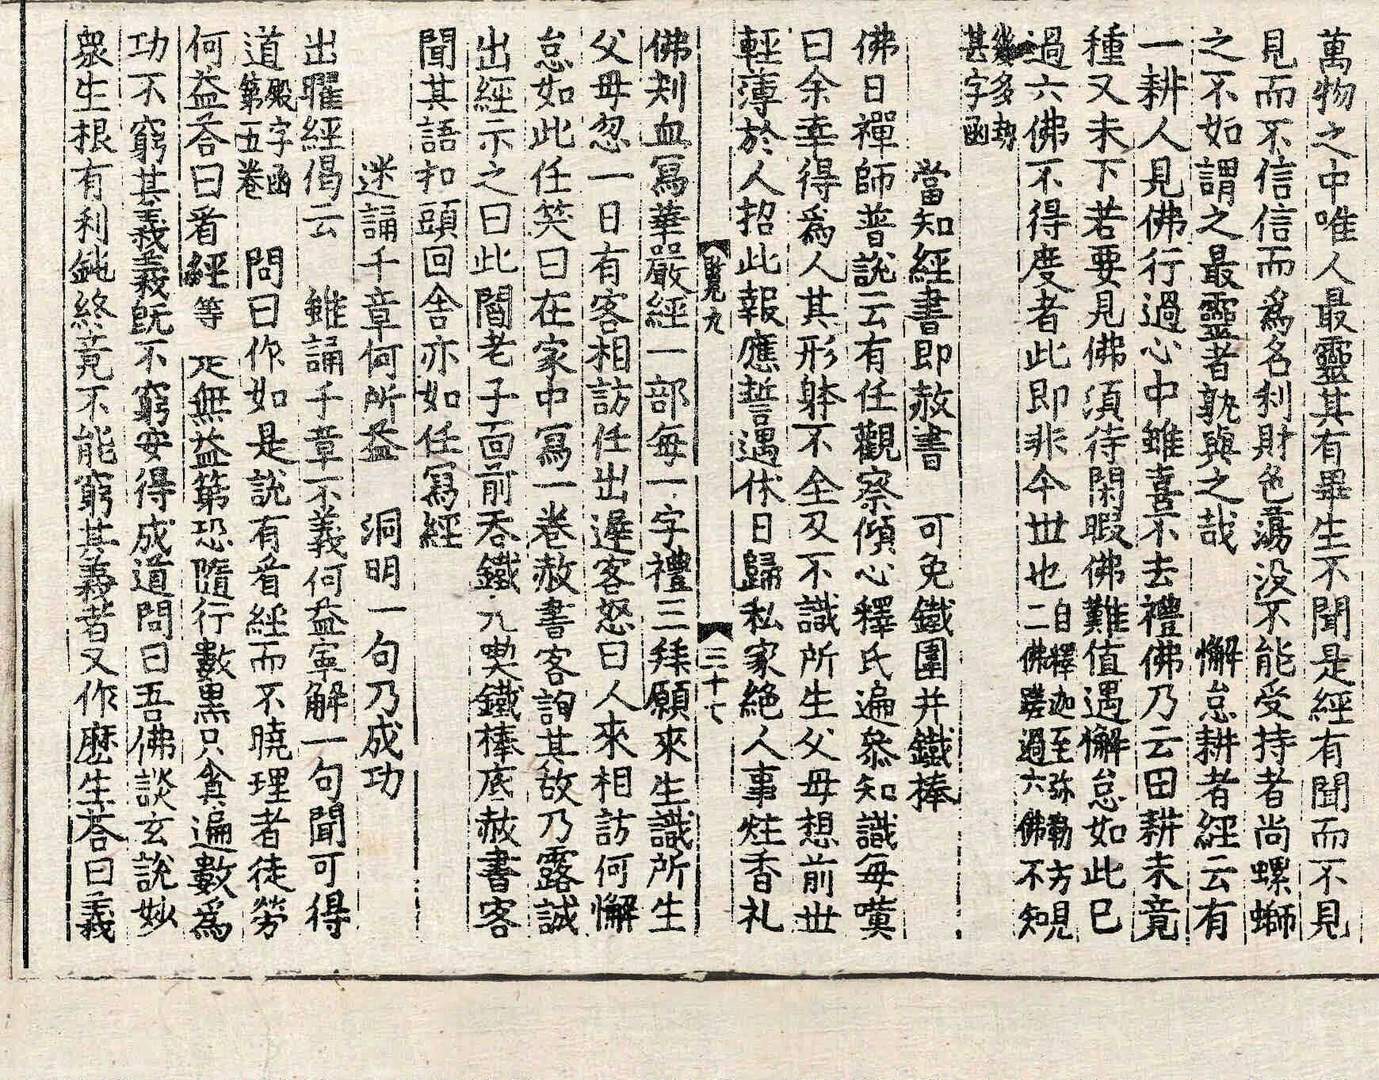 萬物之中唯人最靈其有畢生不聞是經有聞而不見
見而不信信而爲名利財色蕩没不能受持者尚螺螄
之不如謂之最靈者孰與之哉　懈怠耕者經云有
一耕人見佛行過心中雖喜不去禮佛乃云田耕未竟
種又未下若要見佛須待閑暇佛難值遇懈怠如此已
過六佛不得度者此即非今世也自釋迦至弥勒方見
二佛蹉過六佛不知
幾多劫
甚字函
當知經書即赦書　可免鐵圍并鐵棒
佛日禪師普說云有任觀察傾心釋氏遍叅知識每嘆
曰余幸得爲人其形躰不全又不識所生父母想前世
輕薄於人招此報應誓遇休日歸私家絶人事炷香礼
覽九
三十七
佛刾血寫華嚴經一部每一字禮三拜願來生識所生
父母忽一日有客相訪任出遲客怒曰人來相訪何懈
怠如此任笑曰在家中寫一卷赦書客詢其故乃露誠
出經示之曰此閻老子面前吞鐵丸喫鐵棒底赦書客
聞其語扣頭回舍亦如任寫經
迷誦千章何所益　洞明一句乃成功
出曜經偈云　雖誦千章不義何益寧解一句聞可得
道殿字函
第五卷　問曰作如是說有看經而不曉理者徒勞
何益荅曰看經等　定無益第恐隨行數黒只貪遍數爲
功不窮其義義既不窮安得成道問曰吾佛談玄說妙
衆生根有利鈍終竟不能窮其義者又作麽生荅曰義